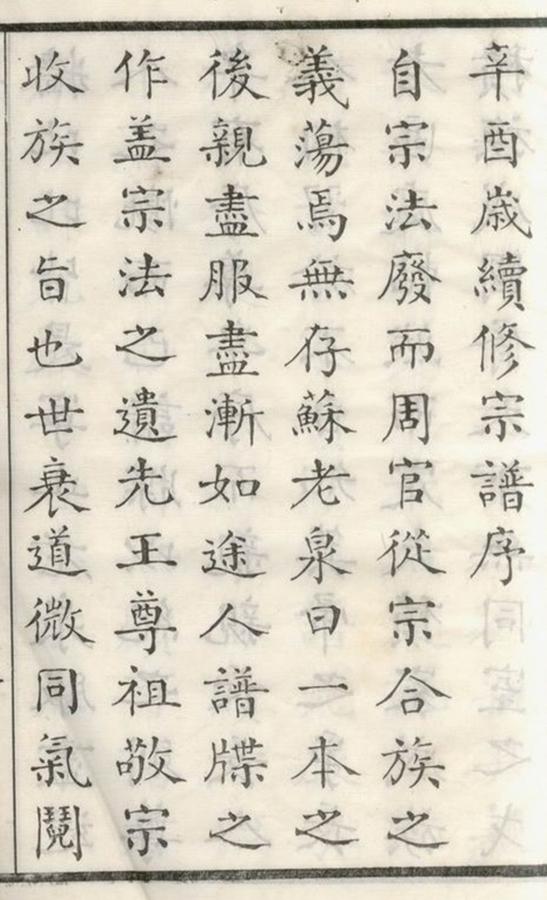 辛酉歳續修宗譜序
自宗法廢而周官從宗合族之
義蕩焉無存蘇老泉曰一本之
後親盡服盡漸如途人譜牒之
作盖宗法之遺先王尊祖敬宗
收族之旨也世衰道微同氣鬩